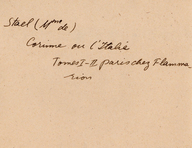 Stael (Mme de)
Corinne ou l'Italie
Tomes I-II paris chez Flamma
rion